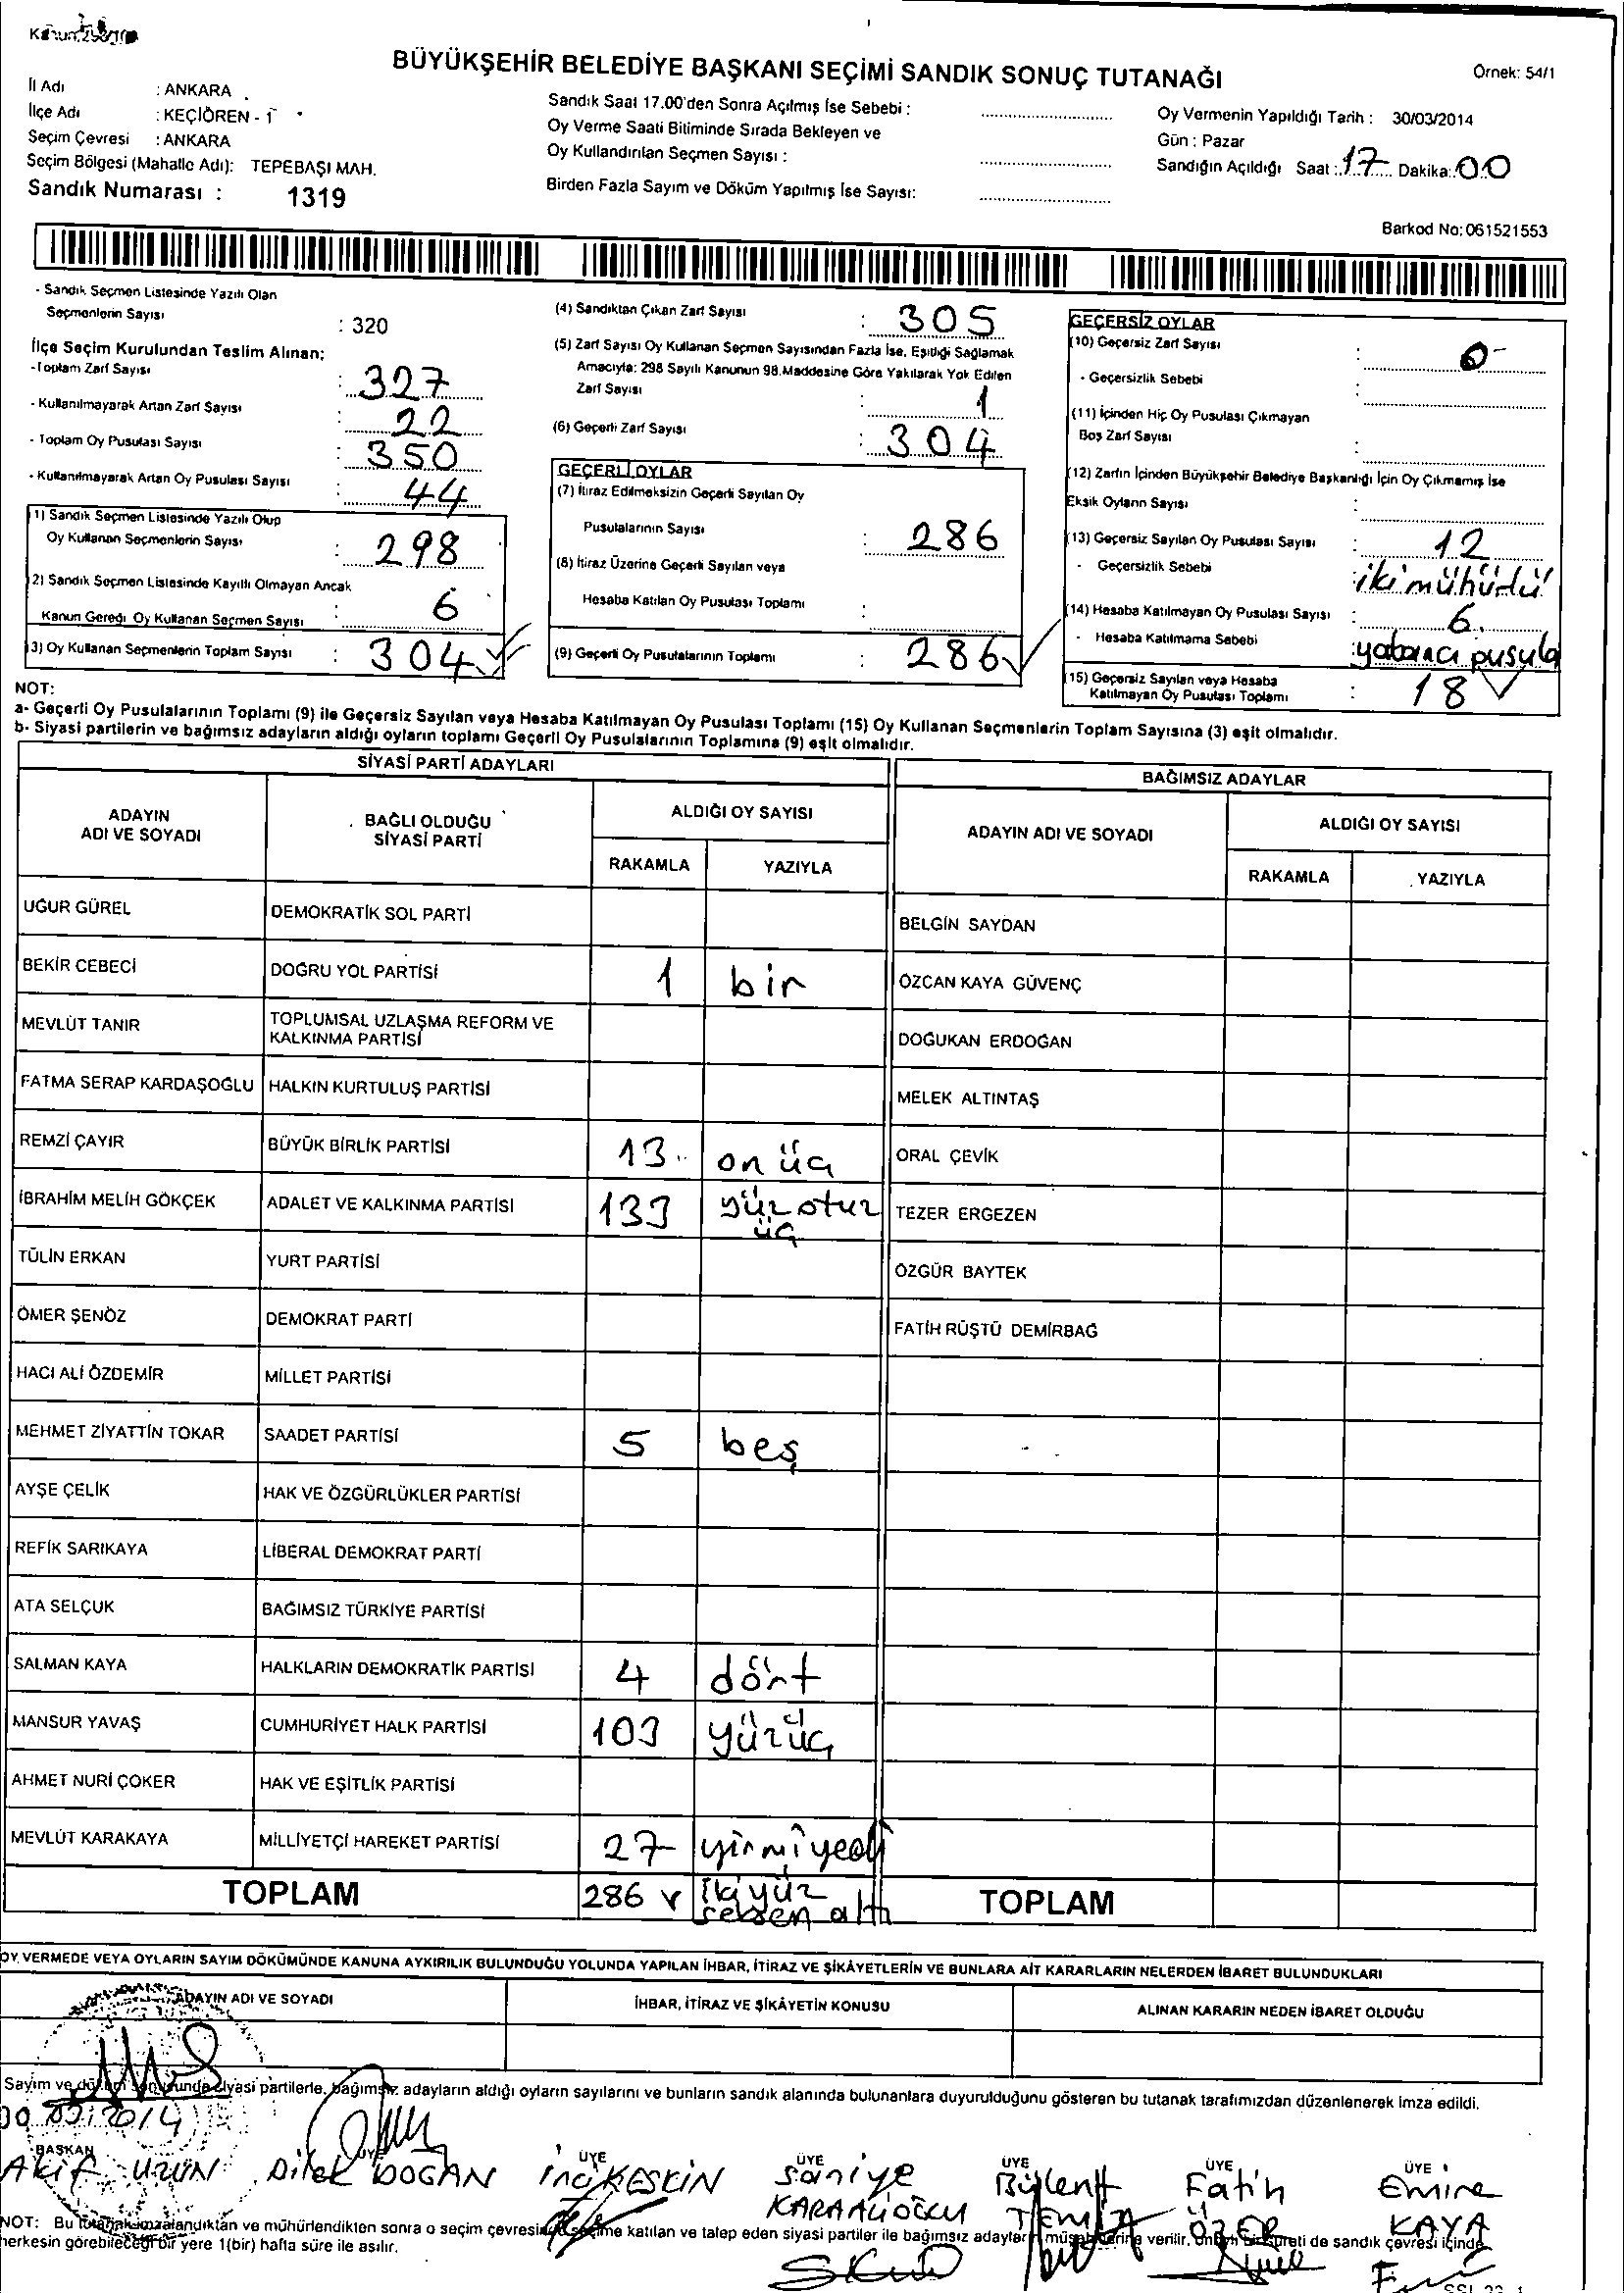 BÜYÜKŞEHİR BELEDİYE BAŞKANI SEÇİMİ SANDIK SONUÇ TUTANAĞI
Örnek: 54/1
İl Adı : ANKARA
İlçe Adı : KEÇİÖREN - 1
Seçim Çevresi : ANKARA
Seçim Bölgesi (Mahalle Adı): TEPEBAŞI MAH.
Sandık Numarası : 1319
Sandık Saat 17.00'den Sonra Açılmış İse Sebebi :
Oy Verme Saati Bitiminde Sırada Bekleyen ve
Oy Kullandırılan Seçmen Sayısı :
Birden Fazla Sayım ve Döküm Yapılmış İse Sayısı:
Oy Vermenin Yapıldığı Tarih : 30/03/2014
Gün : Pazar
Sandığın Açıldığı Saat : 17 Dakika: 00
Barkod No: 061521553
- Sandık Seçmen Listesinde Yazılı Olan
Seçmenlerin Sayısı : 320
İlçe Seçim Kurulundan Teslim Alınan;
- Toplam Zarf Sayısı : 327
- Kullanılmayarak Artan Zarf Sayısı : 22
- Toplam Oy Pusulası Sayısı : 350
- Kullanılmayarak Artan Oy Pusulası Sayısı : 44
1) Sandık Seçmen Listesinde Yazılı Olup
Oy Kullanan Seçmenlerin Sayısı : 298
2) Sandık Seçmen Listesinde Kayıtlı Olmayan Ancak
Kanun Gereği Oy Kullanan Seçmen Sayısı : 6
3) Oy Kullanan Seçmenlerin Toplam Sayısı : 304
(4) Sandıktan Çıkan Zarf Sayısı : 305
(5) Zarf Sayısı Oy Kullanan Seçmen Sayısından Fazla İse, Eşitliği Sağlamak
Amacıyla: 298 Sayılı Kanunun 98.Maddesine Göre Yakılarak Yok Edilen
Zarf Sayısı : 1
(6) Geçerli Zarf Sayısı : 304
GEÇERLİ OYLAR
(7) İtiraz Edilmeksizin Geçerli Sayılan Oy
Pusulalarının Sayısı : 286
(8) İtiraz Üzerine Geçerli Sayılan veya
Hesaba Katılan Oy Pusulası Toplamı :
(9) Geçerli Oy Pusulalarının Toplamı : 286
GEÇERSİZ OYLAR
(10) Geçersiz Zarf Sayısı : 0
- Geçersizlik Sebebi :
(11) İçinden Hiç Oy Pusulası Çıkmayan
Boş Zarf Sayısı :
(12) Zarfın İçinden Büyükşehir Belediye Başkanlığı İçin Oy Çıkmamış İse
Eksik Oyların Sayısı :
(13) Geçersiz Sayılan Oy Pusulası Sayısı : 12
- Geçersizlik Sebebi : iki mühürlü
(14) Hesaba Katılmayan Oy Pusulası Sayısı : 6
- Hesaba Katılmama Sebebi : yabancı pusula
(15) Geçersiz Sayılan veya Hesaba
Katılmayan Oy Pusulası Toplamı : 18
NOT:
a- Geçerli Oy Pusulalarının Toplamı (9) ile Geçersiz Sayılan veya Hesaba Katılmayan Oy Pusulası Toplamı (15) Oy Kullanan Seçmenlerin Toplam Sayısına (3) eşit olmalıdır.
b- Siyasi partilerin ve bağımsız adayların aldığı oyların toplamı Geçerli Oy Pusulalarının Toplamına (9) eşit olmalıdır.
SİYASİ PARTİ ADAYLARI
ADAYIN ADI VE SOYADI BAĞLI OLDUĞU SİYASİ PARTİ ALDIĞI OY SAYISI
RAKAMLA YAZIYLA
UĞUR GÜREL DEMOKRATİK SOL PARTİ
BEKİR CEBECİ DOĞRU YOL PARTİSİ 1 bir
MEVLÜT TANIR TOPLUMSAL UZLAŞMA REFORM VE KALKINMA PARTİSİ
FATMA SERAP KARDAŞOĞLU HALKIN KURTULUŞ PARTİSİ
REMZİ ÇAYIR BÜYÜK BİRLİK PARTİSİ 13 on üç
İBRAHİM MELİH GÖKÇEK ADALET VE KALKINMA PARTİSİ 133 yüz otuz üç
TÜLİN ERKAN YURT PARTİSİ
ÖMER ŞENÖZ DEMOKRAT PARTİ
HACI ALİ ÖZDEMİR MİLLET PARTİSİ
MEHMET ZİYATTİN TOKAR SAADET PARTİSİ 5 beş
AYŞE ÇELİK HAK VE ÖZGÜRLÜKLER PARTİSİ
REFİK SARIKAYA LİBERAL DEMOKRAT PARTİ
ATA SELÇUK BAĞIMSIZ TÜRKİYE PARTİSİ
SALMAN KAYA HALKLARIN DEMOKRATİK PARTİSİ 4 dört
MANSUR YAVAŞ CUMHURİYET HALK PARTİSİ 103 yüzüç
AHMET NURİ ÇOKER HAK VE EŞİTLİK PARTİSİ
MEVLÜT KARAKAYA MİLLİYETÇİ HAREKET PARTİSİ 27 yirmiyedi
TOPLAM 286 ikiyüz seksen altı
BAĞIMSIZ ADAYLAR
ADAYIN ADI VE SOYADI ALDIĞI OY SAYISI
RAKAMLA YAZIYLA
BELGİN SAYDAN
ÖZCAN KAYA GÜVENÇ
DOĞUKAN ERDOĞAN
MELEK ALTINTAŞ
ORAL ÇEVİK
TEZER ERGEZEN
ÖZGÜR BAYTEK
FATİH RÜŞTÜ DEMİRBAĞ
TOPLAM
OY VERMEDE VEYA OYLARIN SAYIM DÖKÜMÜNDE KANUNA AYKIRILIK BULUNDUĞU YOLUNDA YAPILAN İHBAR, İTİRAZ VE ŞİKÂYETLERİN VE BUNLARA AİT KARARLARIN NELERDEN İBARET BULUNDUKLARI
ADAYIN ADI VE SOYADI İHBAR, İTİRAZ VE ŞİKÂYETİN KONUSU ALINAN KARARIN NEDEN İBARET OLDUĞU
Sayım ve döküm sonucunda siyasi partilerle, bağımsız adayların aldığı oyların sayılarını ve bunların sandık alanında bulunanlara duyurulduğunu gösteren bu tutanak tarafımızdan düzenlenerek imza edildi.
BAŞKAN ÜYE ÜYE ÜYE ÜYE ÜYE ÜYE
Akif UZUN Dilek DOĞAN KESKİN Saniye Bülent Fatih Emine
KARAALİOĞLU ÖZER KAYA
NOT: Bu tutanak imzalandıktan ve mühürlendikten sonra o seçim çevresinde seçime katılan ve talep eden siyasi partiler ile bağımsız adayların müşahitlerine verilir, onaylı bir sureti de sandık çevresi içinde
herkesin görebileceği bir yere 1(bir) hafta süre ile asılır.